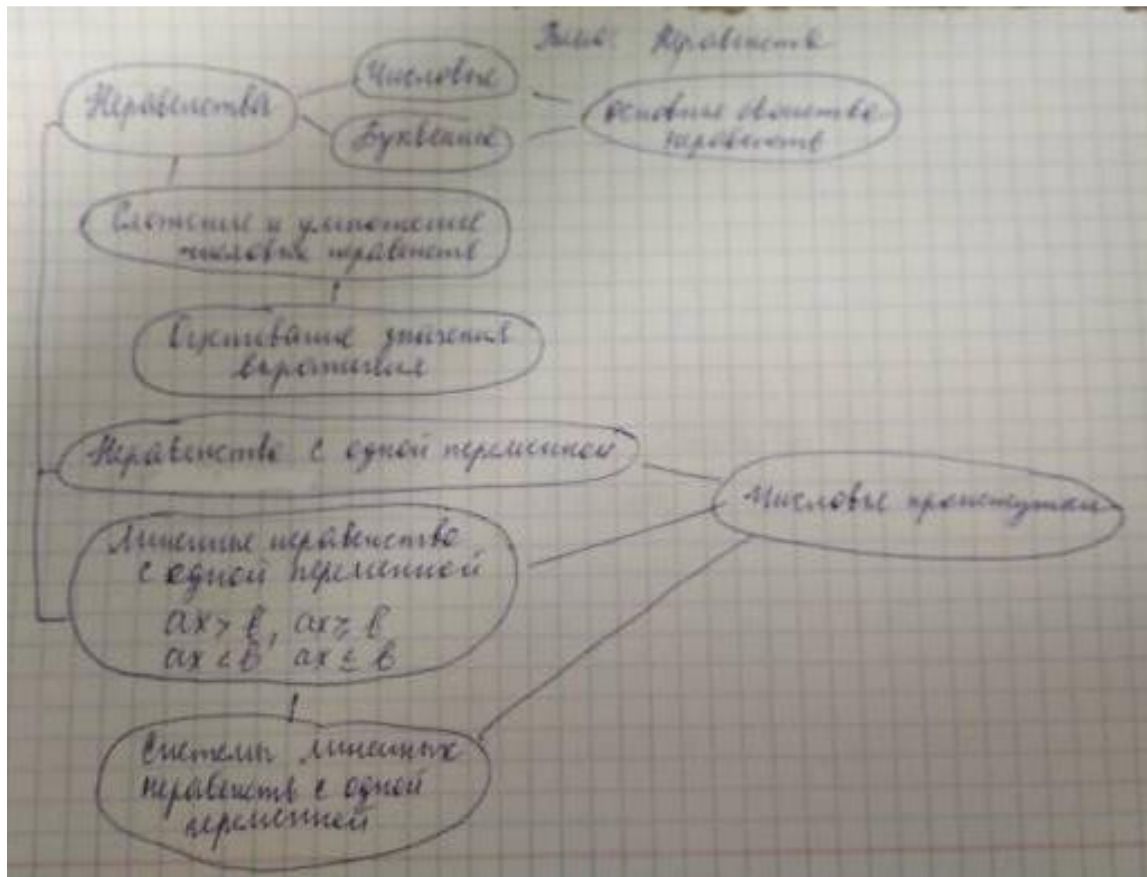 Тема: Неравенства
Неравенства
Числовые
Буквенные
Основные свойства
неравенств
Сложение и умножение
числовых неравенств
Оценивание значения
выражения
Неравенство с одной переменной
Числовые промежутки
Линейные неравенство
с одной переменной
ax > b, ax ≥ b
ax < b, ax ≤ b
Системы линейных
неравенств с одной
переменной